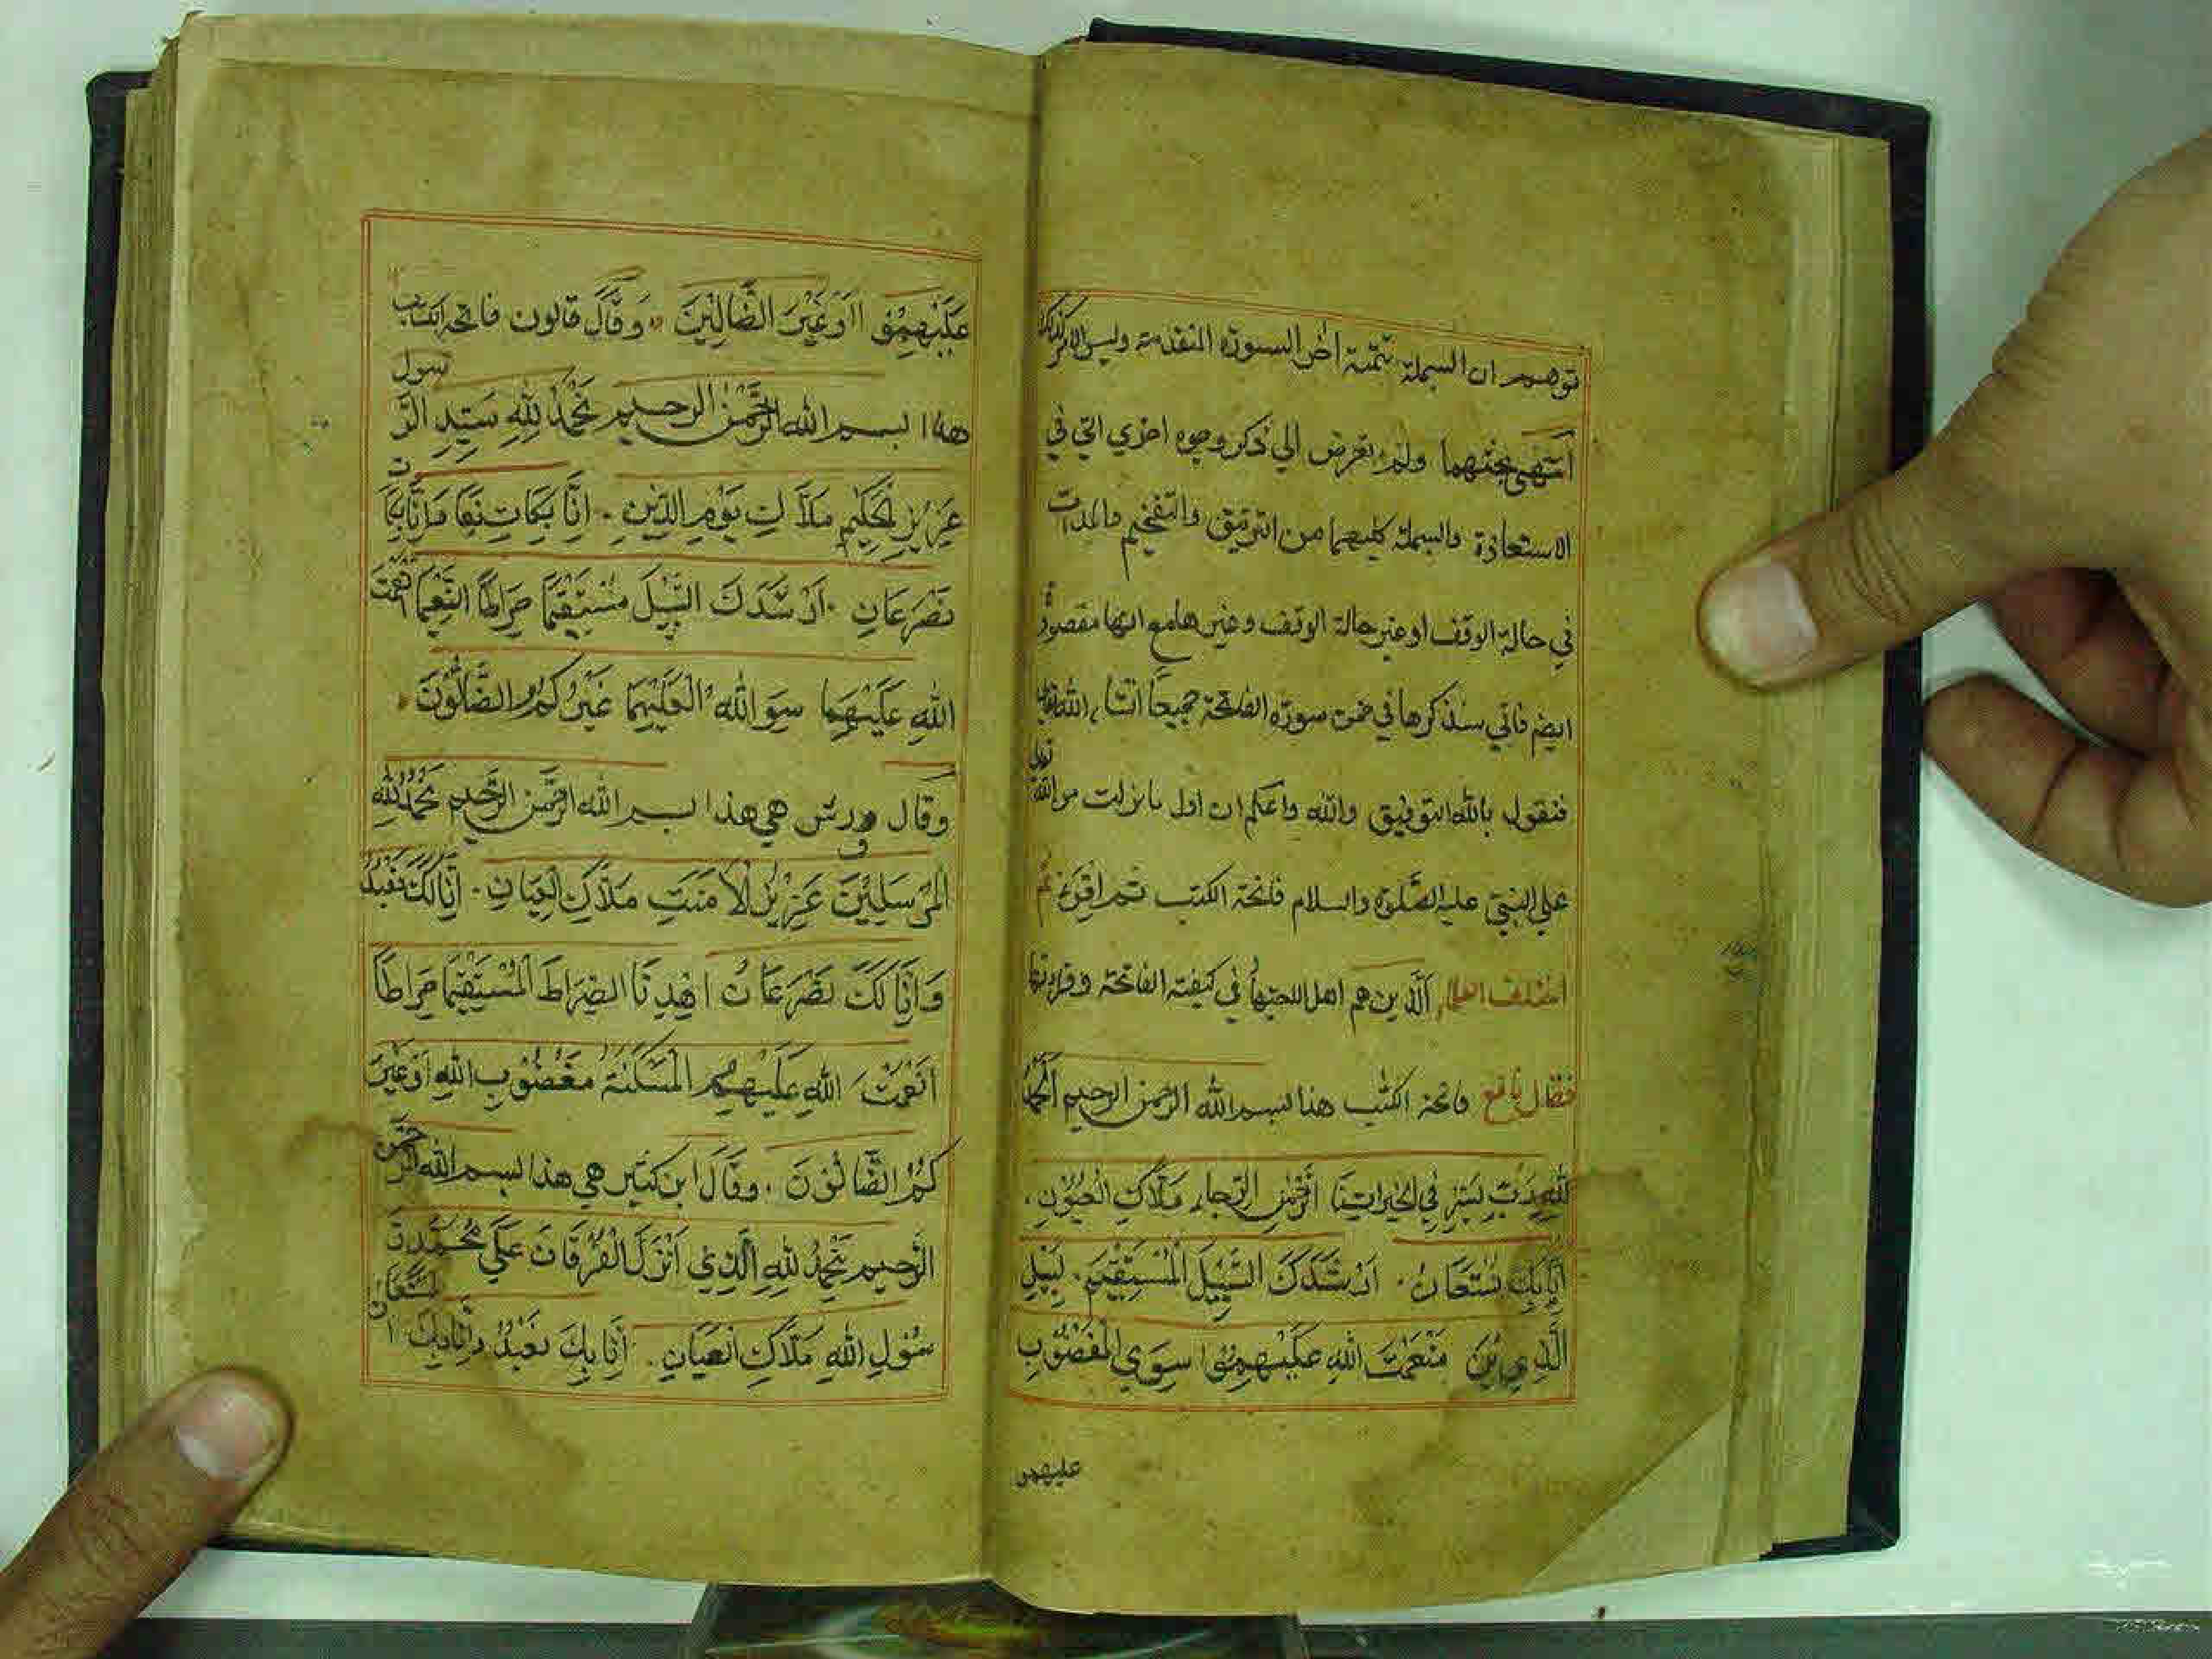 توهم ان البسملة تتمة اخر السورة المتقدمة وليس الامر كذلك
انتهى بحثهما ولم نعرض الي ذكر وجوه اخري التي في
الاستعاذة والبسملة كليهما من الترقيق والتفخيم والمدات
في حالة الوقف او غير حالة الوقف وغيرها مع انها مقصودة
ايضم فاني سنذكرها في ضمن سورة الفاتحة جميعا انشاء الله تعالى
فنقول بالله التوفيق والله واعلم ان اول ما نزلت من الله تعالى
علي النبي عليه الصلوة والسلام فاتحة الكتب ثم اقرء ثم
اختلف العلماء الذين هم اهل اللحتها في كيفية الفاتحة وقراءتها
فقال نافع فاتحة الكتب هذا بسم الله الرحمن الرحيم
لله رب في الرحمن الرجاء ملاك
اياك نستعان ارشدك السبيل المستقيم
الذي منعمت الله عليهموا سوي المغضوب
عليهمو
عليهموا او غير الضالين وقال قالون فاتحة الكتاب
هذا بسم الله الرحمن الرحيم نحمد لله سيد الرسول
عزيز الحكيم ملاك يوم الدين انا
نضرعان ارشدك السبيل مستقيما صراطا
الله عليهما سوا الله العليهما غيركم الضالون
وقال ورش هي هذا بسم الله الرحمن الرحيم نحمد لله
المرسلين عزيز لا منت ملاك العيان انا لك نعبد
وانا لك نضرعان اهدنا الصراط المستقيما صراطا
انعمت الله عليهم المسكنة مغضوب الله او غير
كم الضالون وقال ابن كثير هي هذا بسم الله الرحمن
الرحيم نحمد لله الذي انزل الفرقان على محمد
رسول الله ملاك العيان انا بك نعبد وانا بك نستعان